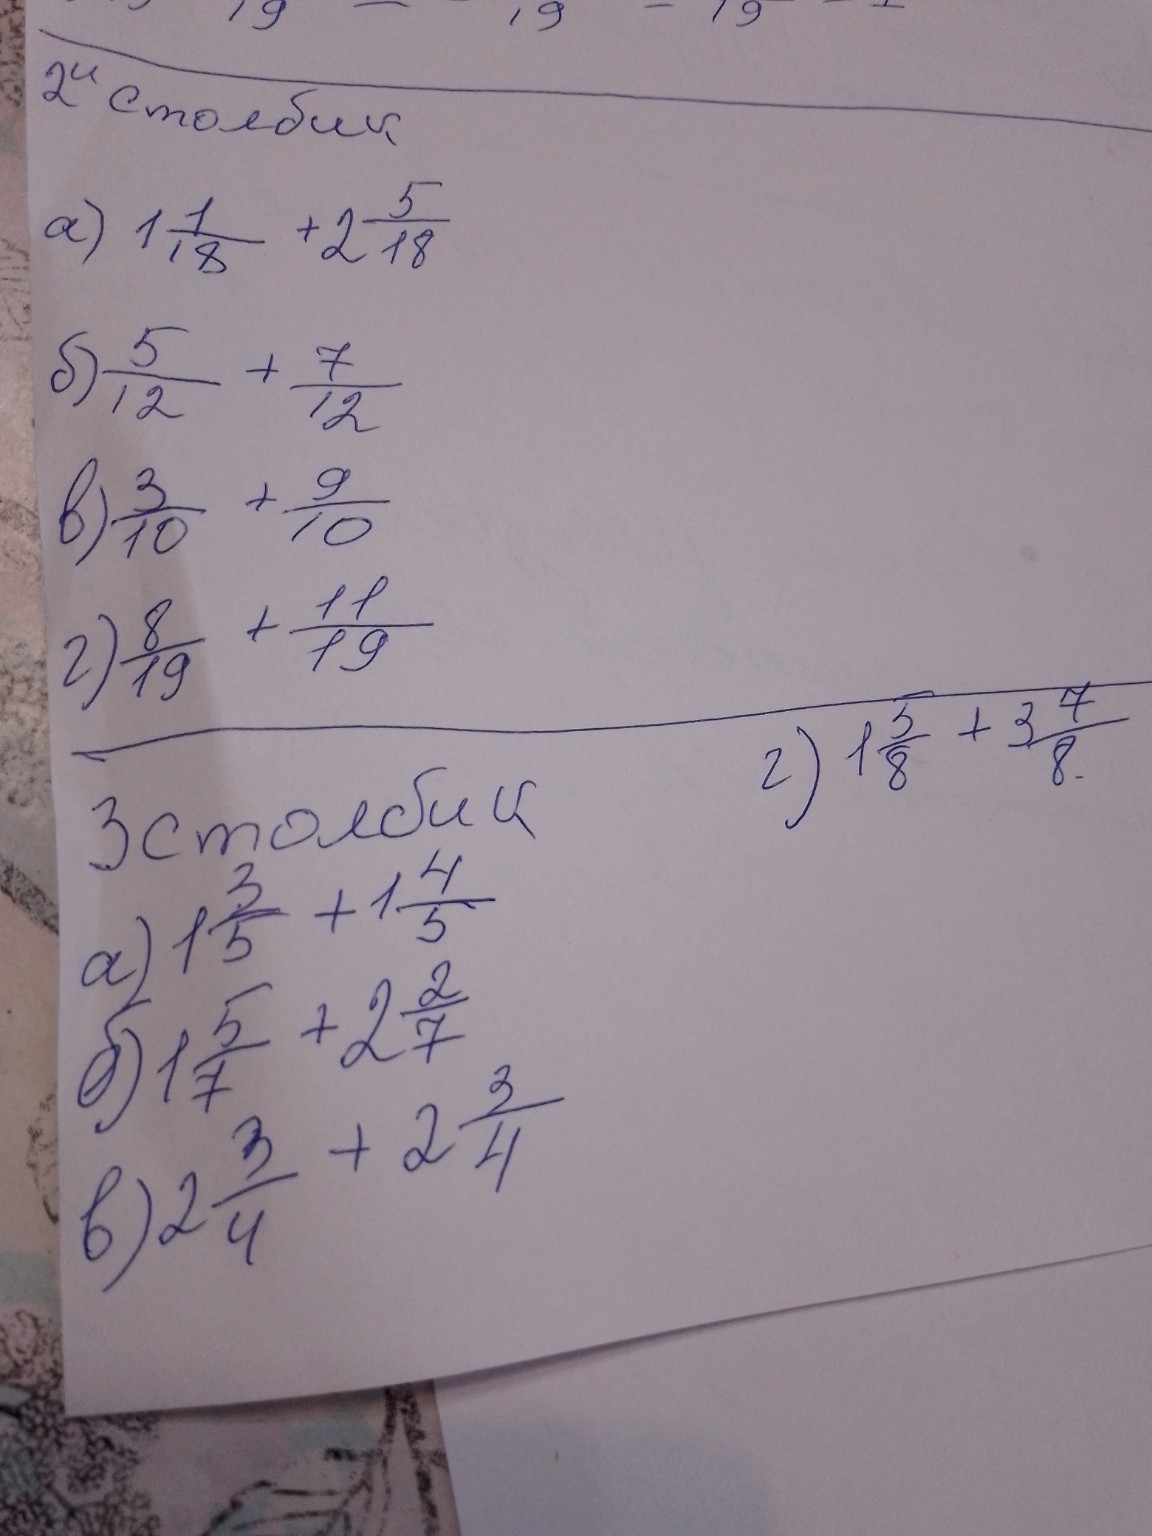 19 = 19 = 19
2й столбик
а) 1 1/18 + 2 5/18
б) 5/12 + 7/12
в) 3/10 + 9/10
г) 8/19 + 11/19
г) 1 5/8 + 3 7/8
3 столбик
а) 1 3/5 + 1 4/5
б) 1 5/7 + 2 2/7
в) 2 3/4 + 2 3/4